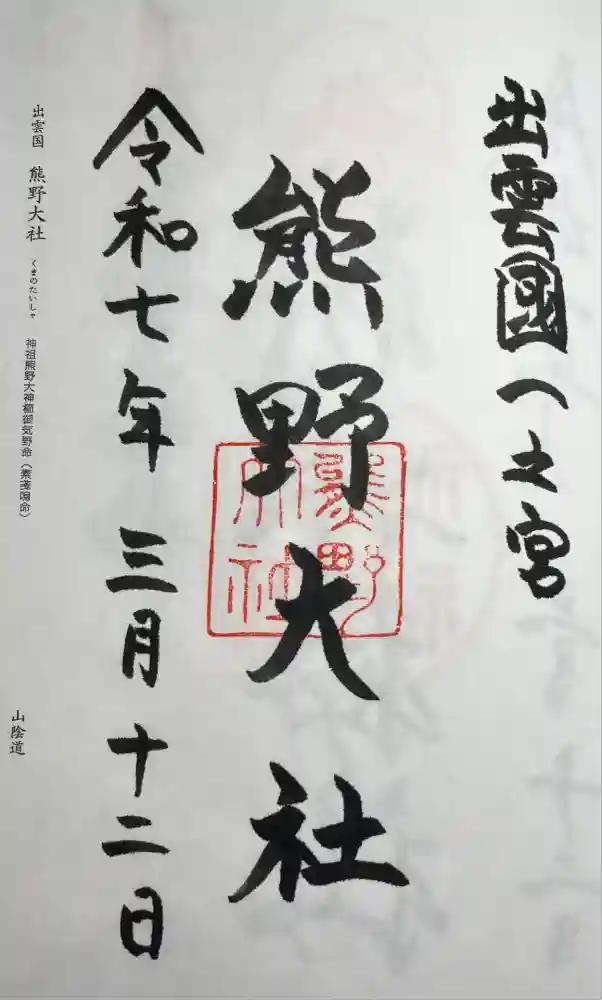 出雲國一之宮
熊野大社
熊野大社
令和七年 三月 十二日
出雲国 熊野大社 くまのたいしゃ 神祖熊野大神櫛御気野命(素戔嗚命)
山陰道